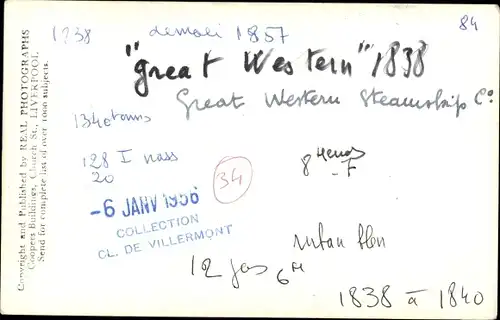 1838
demoli 1857
84
"Great Western" 1838
Great Western Steamship Co
1340 tonns
128 I
20
34
8
-F
-6 JANV 1956
COLLECTION
CL. DE VILLERMONT
12
6
1838 à 1840
Copyright and Published by REAL PHOTOGRAPHS
Coopers Buildings, Church St., LIVERPOOL.
Send for complete list of over 1000 subjects.